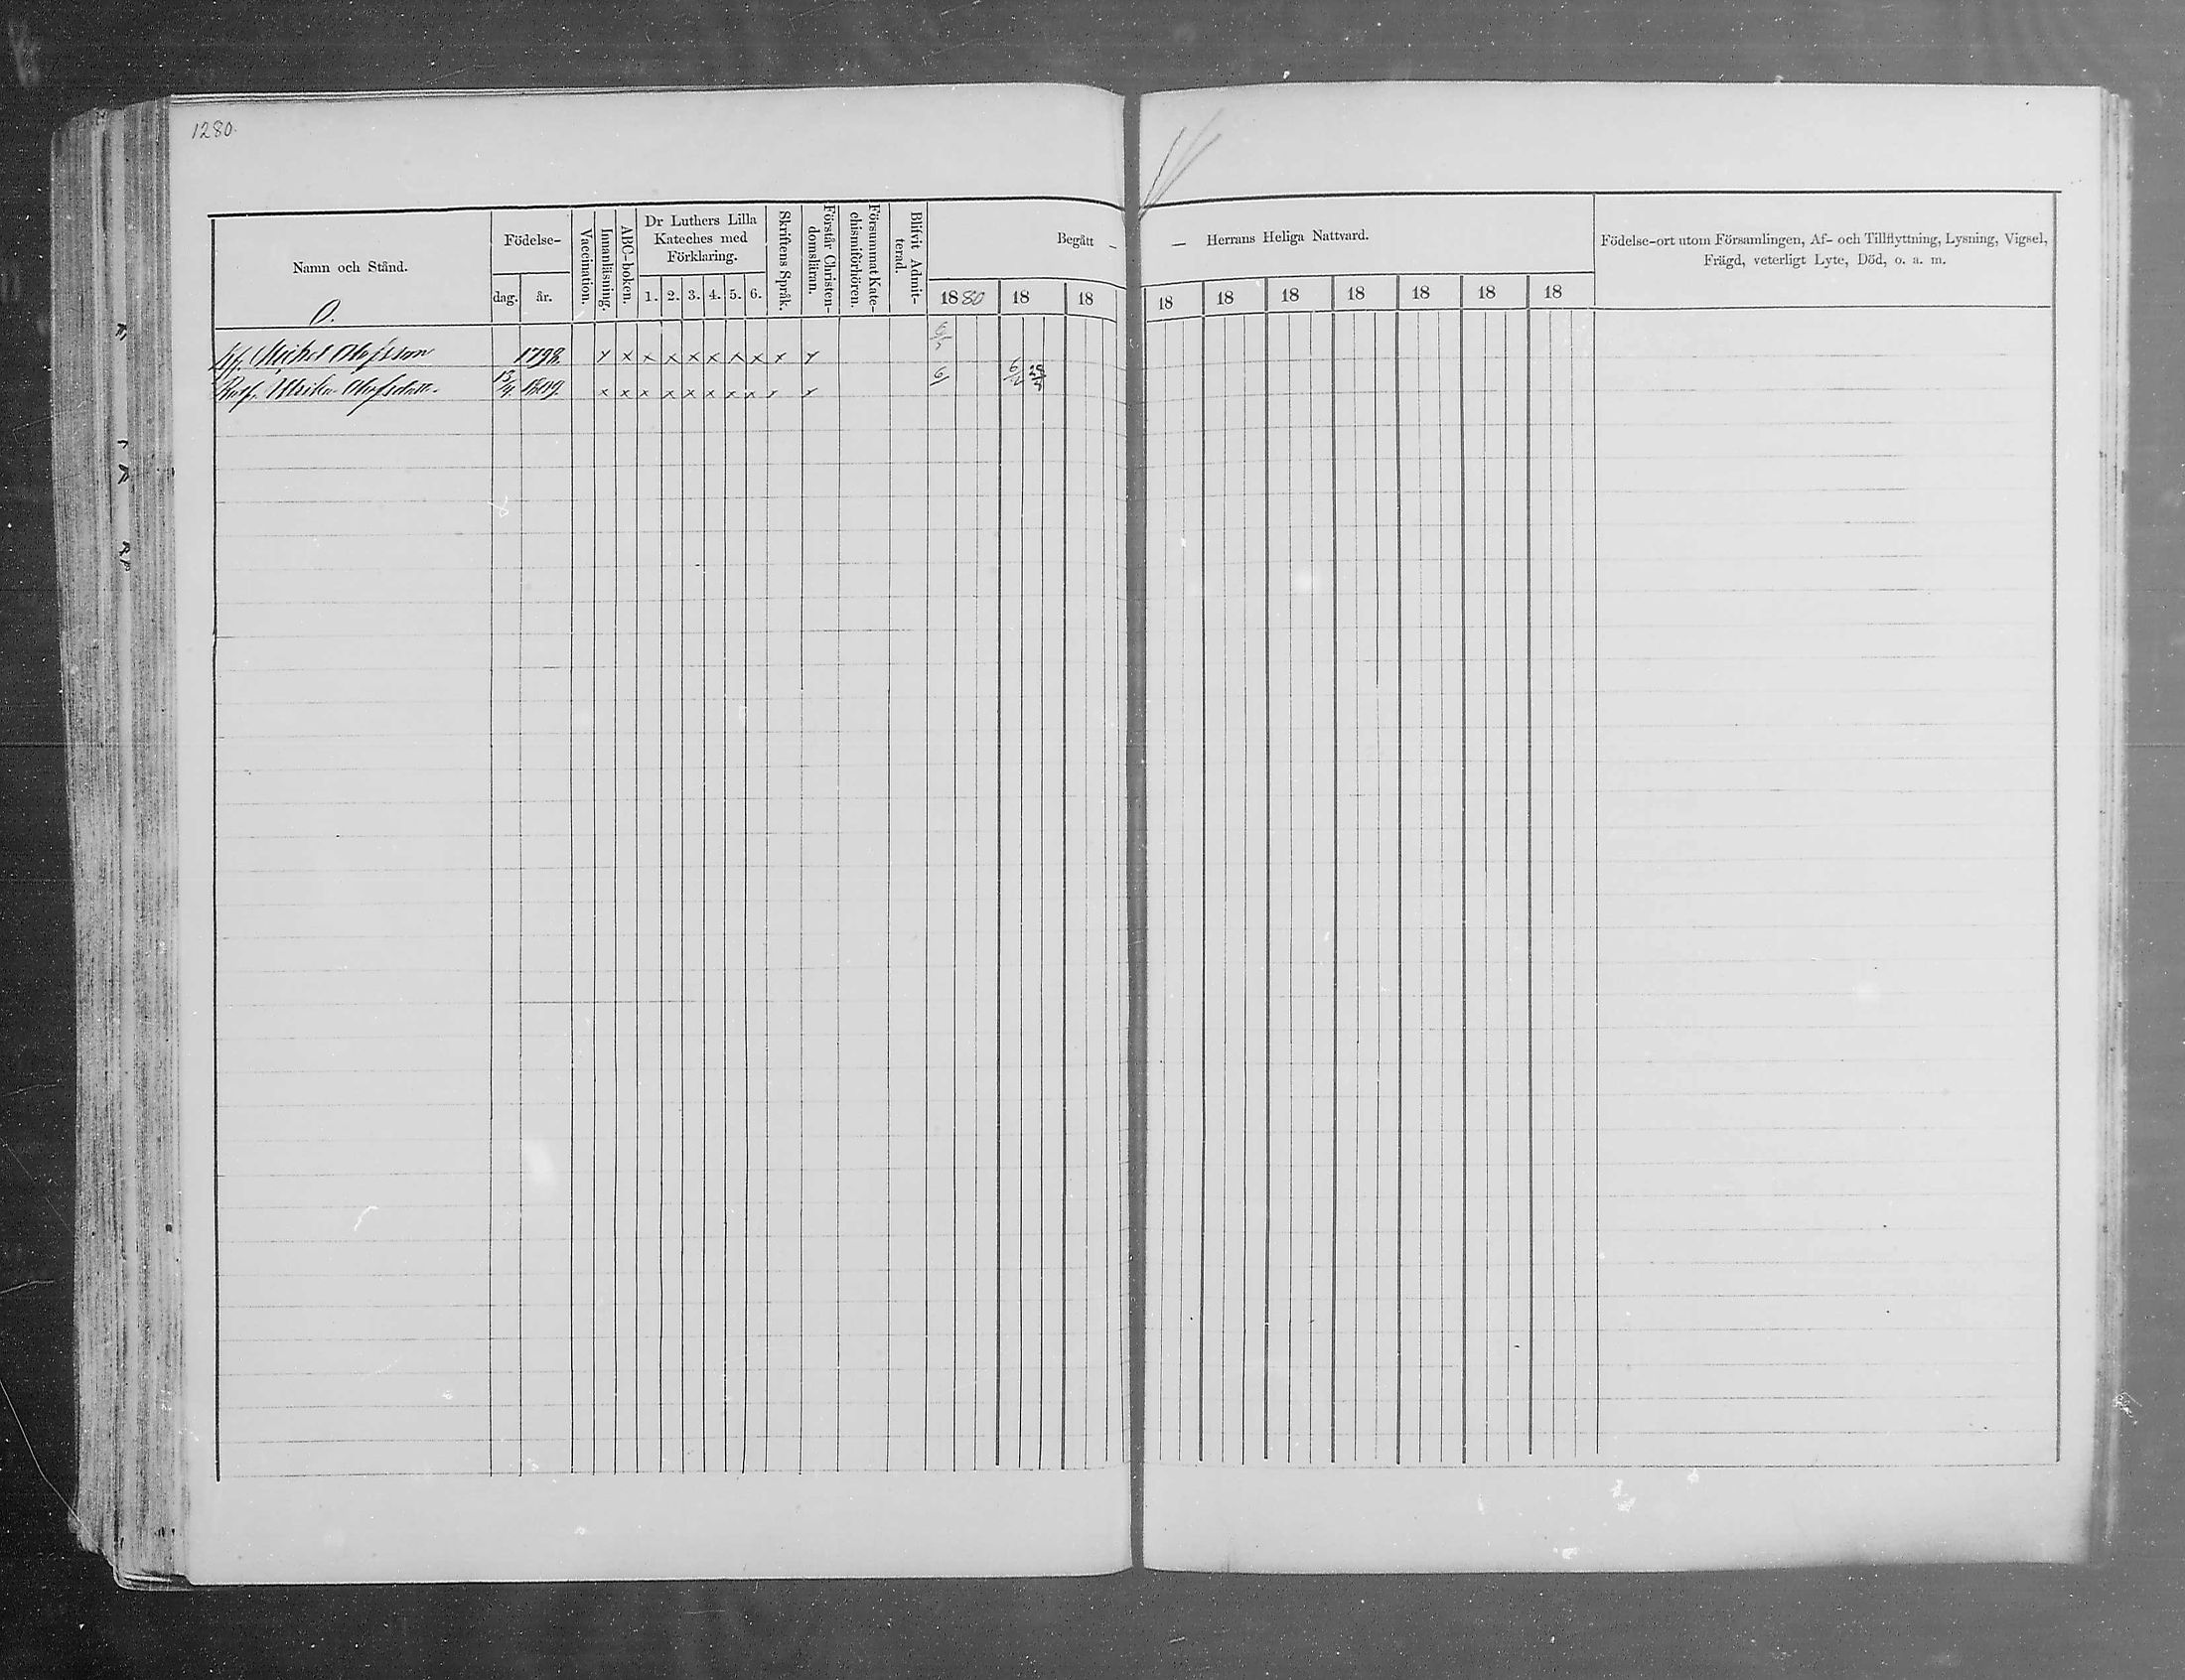 1280.
Namn och Stånd.
O.
Födelse-
dag. år.
Vaccination.
Innanläsning.
ABC-boken.
Dr Luthers Lilla
Kateches med
Förklaring.
1. 2. 3. 4. 5. 6.
Skriftens Språk.
Förstår Christen-
domsläran.
Försummat Kate-
chismiförhören.
Blifvit Admit-
terad.
Begått — — Herrans Heliga Nattvard.
1880 18 18 18 18 18 18 18 18 18
Födelse-ort utom Församlingen, Af- och Tillflyttning, Lysning, Vigsel,
Frägd, veterligt Lyte, Död, o. a. m.
Michel Olofsson 1798. x x x x x x x x x x
Ulrika Olofsdotter 13/4 1809. x x x x x x x x x x